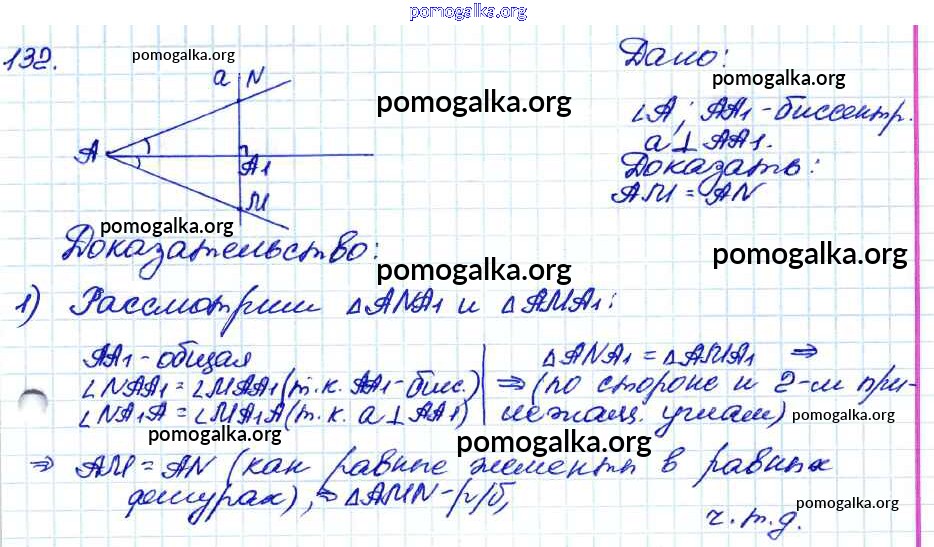 pomogalka.org
132.
pomogalka.org
a N
A
A1
M
pomogalka.org
Дано:
pomogalka.org
∠A; AA1-биссектр.
a ⊥ AA1.
Доказать:
AM = AN
pomogalka.org
Доказательство:
pomogalka.org
pomogalka.org
1) Рассмотрим △ANA1 и △AMA1:
AA1-общая
∠NAA1=∠MAA1(т.к. AA1-бис.)
∠NA1A=∠MA1A(т.к. a⊥AA1)
△ANA1=△AMA1 ⇒
⇒ (по стороне и 2-м при-
лежащ. углам)
pomogalka.org
pomogalka.org
pomogalka.org
⇒ AM = AN (как равные элементы в равных
фигурах), ⇒ △AMN-р/б,
pomogalka.org
ч.т.д.